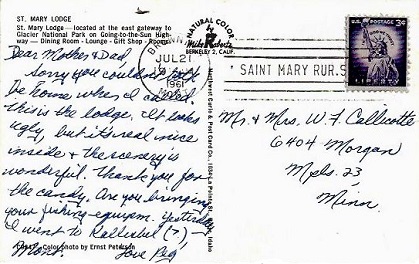 ST. MARY LODGE
St. Mary Lodge—located at the east gateway to
Glacier National Park on Going-to-the-Sun High-
way — Dining Room - Lounge - Gift Shop - Rooms
Dear Mother & Dad,
Sorry you couldn't both
be home when I called.
This is the lodge. It looks
ugly, but it's real nice
inside & the scenery is
wonderful. Thank you for
the candy. Are you bringing
your fishing equipm. Yesterday
I went to Kallisbel (?),
Mont. Love Peg
Color photo by Ernst Peterson
NATURAL COLOR
Mike Roberts
BERKELEY 2, CALIF.
JUL 21
1961
SAINT MARY RUR. S
U.S. POSTAGE
3¢
LIBERTY
Mr. & Mrs. W F Callicotte
6404 Morgan
Mpls. 23
Minn.